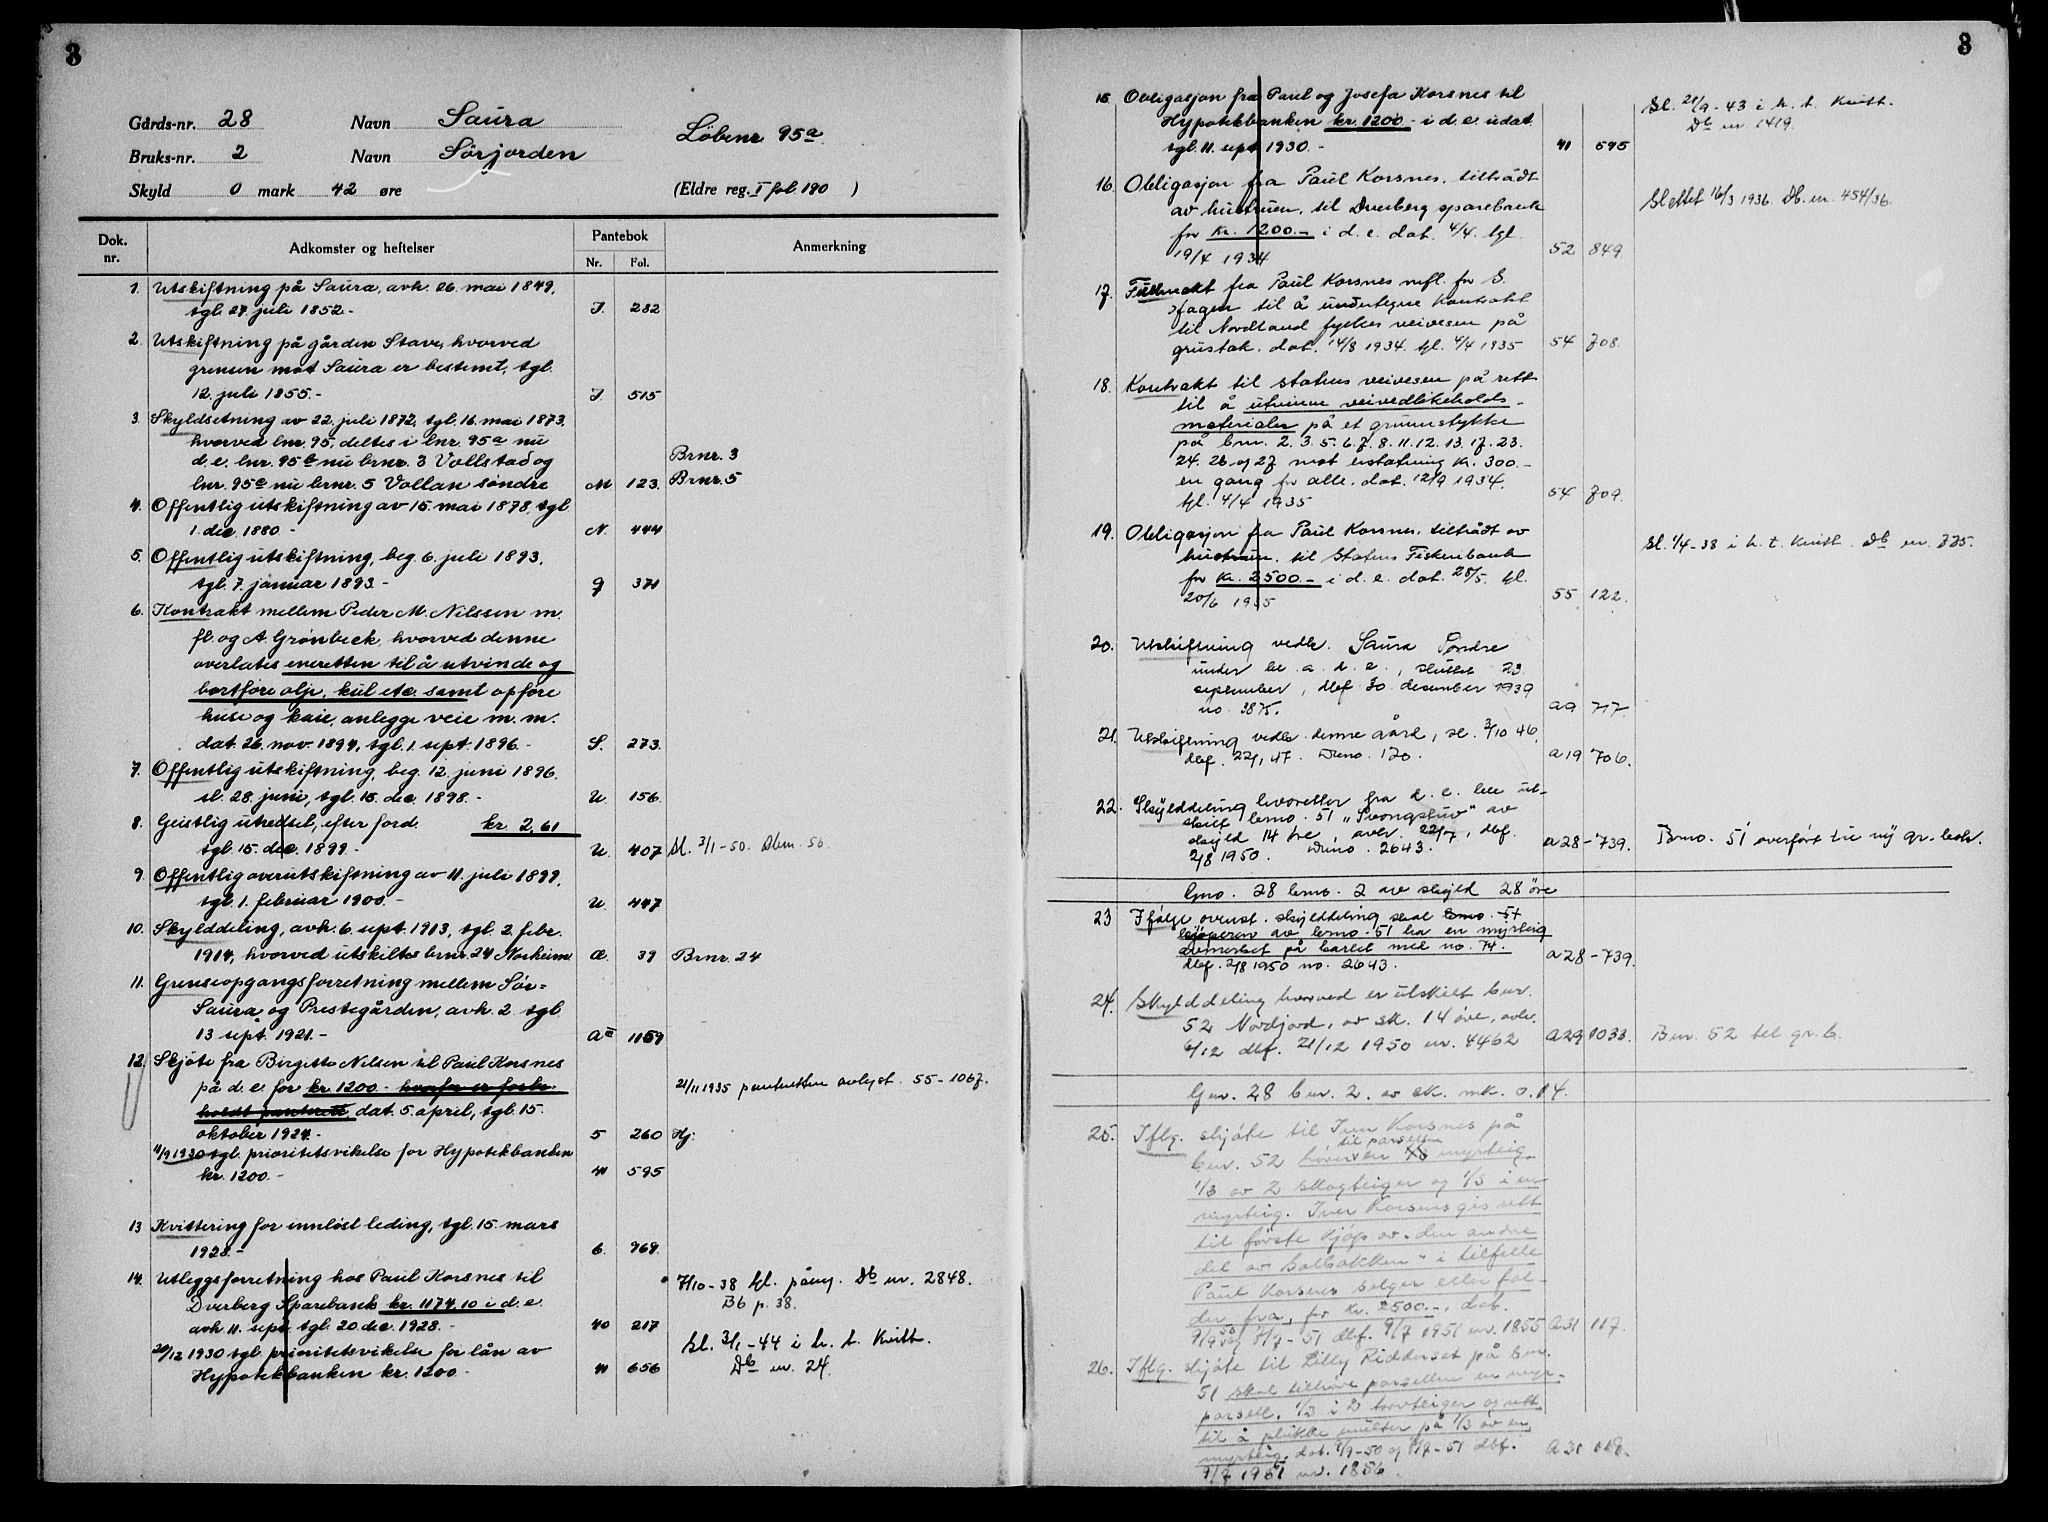 3
Gårds-nr. 28 Navn Saura
Løbenr. 95a
Bruks-nr. 2 Navn Sörjorden
Skyld 0 mark 42 øre (Eldre reg. I fol. 190 )
Dok. nr. Adkomster og heftelser Pantebok Anmerkning
Nr. Fol.
1. Utskiftning på Saura, avh. 26. mai 1849,
tgl. 27. juli 1852.- I. 282
2. Utskiftning på gården Stave, hvorved
grensen mot Saura er bestemt, tgl.
12. juli 1855.- I 515
3. Skyldsetning av 22. juli 1872, tgl. 16. mai 1873.
hvorved lnr. 95, deltes i lnr. 95a nu
d.e. lnr. 95b nu brnr. 3 Vollstad og Brnr. 3
lnr. 95c nu brnr. 5 Vollan søndre M 123. Brnr. 5
4. Offentlig utskiftning av 15. mai 1878, tgl
1. dec. 1880 - N. 444
5. Offentlig utskiftning, beg. 6. juli 1893,
tgl. 7. januar 1893.- 371
6. Kontrakt mellem Peder M. Nilssen m.
fl. og A. Grønbeck, hvorved denne
overlates eneretten til å utvinde og
bortføre olje, kul etc. samt opføre
huse og kaie, anlegge veie m. m.
dat. 26. nov. 1894, tgl. 1. sept. 1896.- S. 273.
7. Offentlig utskiftning, beg. 12. juni 1896.
sl. 28. juni, tgl. 15. dec. 1898.- U. 156.
8. Geistlig utredsel, efter ford. kr. 2,61
tgl. 15. dec. 1899.- U. 407 Sl. 3/1-50. Dbnr. 56.
9. Offentlig overutskiftning av 11. juli 1899,
tgl. 1. februar 1900.- U. 447
10. Skylddeling, avh. 6. sept. 1913, tgl. 2. febr.
1914, hvorved utskiltes brnr. 24 Norheim Æ. 39 Brnr. 24
11. Grenseopgangsforretning mellem Sør=
Saura og Prestegården, avh. 2. tgl.
13 sept. 1921.- 1159
12. Skjøte fra Birgitte Nilsen til Paul Korsnes
på d.e. for kr. 1200.- hvorfor er forbe- 21/11 1935 panteretten avlyst. 55-1067.
holdt panterett, dat. 5. april, tgl. 15.
oktober 1924.- 5 260 Hj.
11/9 1930 tgl. prioritetsvikelse for Hypotekbanken
kr. 1200.- 41 595
13 Kvittering for innløst leding, tgl. 15. mars
1928.- 6. 969.
14. Utleggsforretning hos Paul Korsnes til 7/10-38 tgl. påny. Db nr. 2848.
Dverberg Sparebank kr. 1174,10 i d.e. B6 p. 38.
avh. 11. sept. tgl. 20. dec. 1928.- 40 217
20/12 1930 tgl. prioritetsvikelse for lån av Sl. 3/1-44 i h. t. Kvitt.
Hypotekbanken kr. 1200.- 41 656 Db nr. 24.
3
15 Obligasjon fra Paul og Josefa Korsnes til Sl. 21/9-43 i h. t. Kvitt.
Hypotekbanken kr. 1200.- i d.e. udat. Db nr. 1419.
tgl. 11. sept 1930.- 41 595
16. Obligasjon fra Paul Korsnes, tiltrådt
av hustruen, til Dverberg sparebank Slettet 16/3 1936. Db. nr. 454/36.
for kr. 1200.- i d.e. dat. 4/4. tgl.
19/4 1934 52 849.
17. Fullmakt fra Paul Korsnes mfl. for S.
til å undertegne kontrakt
til Nordland fylkes veivesen på
grustak. dat. 14/8 1934. tgl. 4/4 1935 54 708.
18. Kontrakt til statens veivesen på rett
til å utvinne veivedlikeholds-
materialer på et grunnstykke
på bnr. 2. 3. 5. 6. 7. 8. 11. 12. 13. 17. 23.
24. 26 og 27 mot erstatning kr. 300.-
en gang for alle. dat. 12/9 1934.
tgl. 4/4 1935 54 709.
19. Obligasjon fra Paul Korsnes, tiltrådt av
hustruen, til Statens Fiskerbank Sl. 1/4-38 i h. t. Kvitt. Db nr. 775.
for kr. 2500.- i d.e. dat. 28/5. tgl.
20/6 1935 55 122.
20. Utskiftning vedk. Saura Søndre
under bl. a. d.e., sluttet 23
september, dbf. 30. desember 1939
no. 3875. a9 717.
21. Utskiftning vedk. denne gård, sl. 3/10 46.
dbf. 22/1 47. Dno. 120. a19 706.
22. Skylddeling hvoretter fra d.e. ble ut-
skilt brno. 51 „Svongstuv" av
skyld 14 øre, avh. 22/7, dbf.
2/8 1950. Dno. 2643. a28-739. Brno. 51 overført til ny gr. bok.
Gno. 28 brno. 2 av skyld 28 øre
23 Ifølge ovenst. skylddeling skal brno. 51
kjøperen av brno. 51 ha en myrteig
avmerket på kartet med no. 74.
dbf. 2/8 1950 no. 2643. a28-739.
24. Skylddeling hvorved er utskilt bnr.
52 Nordjord, av sk. 14 øre, avh.
6/12 dbf. 21/12 1950 nr. 4462 a29 1033. Bnr. 52 til gr. b.
Gnr. 28 bnr. 2. av sk. mk. 0.14.
25. Iflg. skjøte til Iver Korsnes på
til parsellen
bnr. 52 hører en myrteig,
1/3 av 2 skogteiger og 1/3 i en
myrteig. Iver Korsnes gis rett
til første kjøp av „den andre
del av Solbakken" i tilfelle
Paul Korsnes selger eller fal-
der fra, for kr. 2500.-, dat.
9/9 50 og 7/7-51 dbf. 9/7 1951 nr. 1855 a31 117.
26. Iflg. skjøte til Lilly Ridderset på bnr.
51 skal tilhøre parsellen en myr-
parsell, 1/3 i 2 torvteiger og rett
til å plukke multer på 1/3 av en
myrteig, dat. 9/9-50 og 7/7-51 dbf.
9/7 1951 nr. 1856. a31 118.